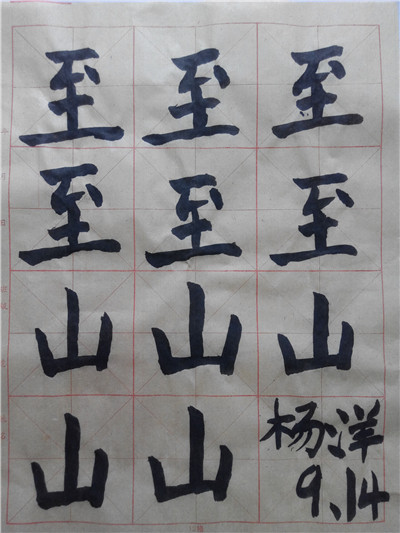 至至至
至至至
山山山
山山杨洋
9.14